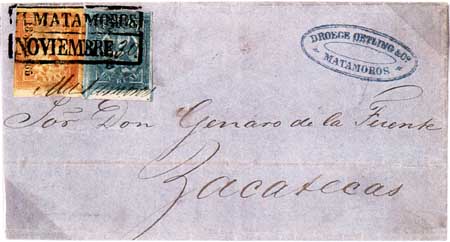 MATAMOROS
NOVIEMBRE
DROEGE OETLING & Cº
MATAMOROS
Sor Don Genaro de la Fuente
Zacatecas